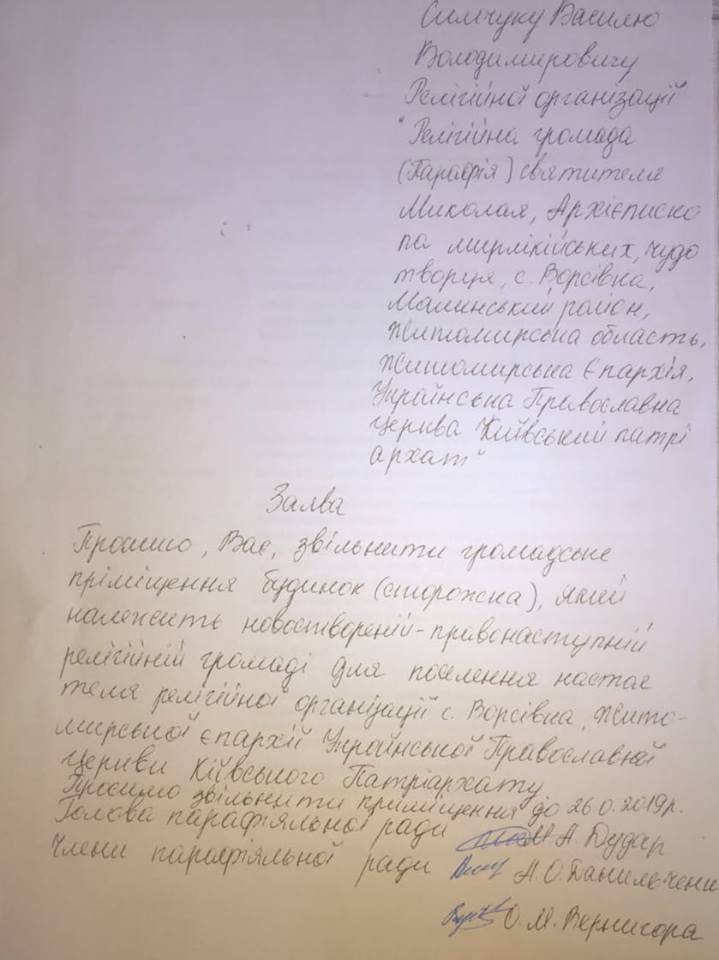 Симчуку Василю
Володимировичу
Релігійної організації
"Релігійна громада
(Парафія) святителя
Миколая, Архієписко
па мирлікійських, чудо
творця, с. Ворсівка,
Малинський район,
Житомирська область,
Житомирська Єпархія,
Українська Православна
Церква "Київський патрі
архат"
Заява
Просимо, Вас, звільнити громадське
приміщення будинок (сторожка), який
належить новоствореній-правонаступній
релігійній громаді для поселення настоя
теля релігійної організації с. Ворсівка, Жито-
мирської єпархії Української Православної
Церкви Київського Патріархату
Просимо звільнити приміщення до 26.0.2019р.
Голова парафіяльної ради М А Будар
Члени парафіяльної ради А О.
О. М. Вернигора